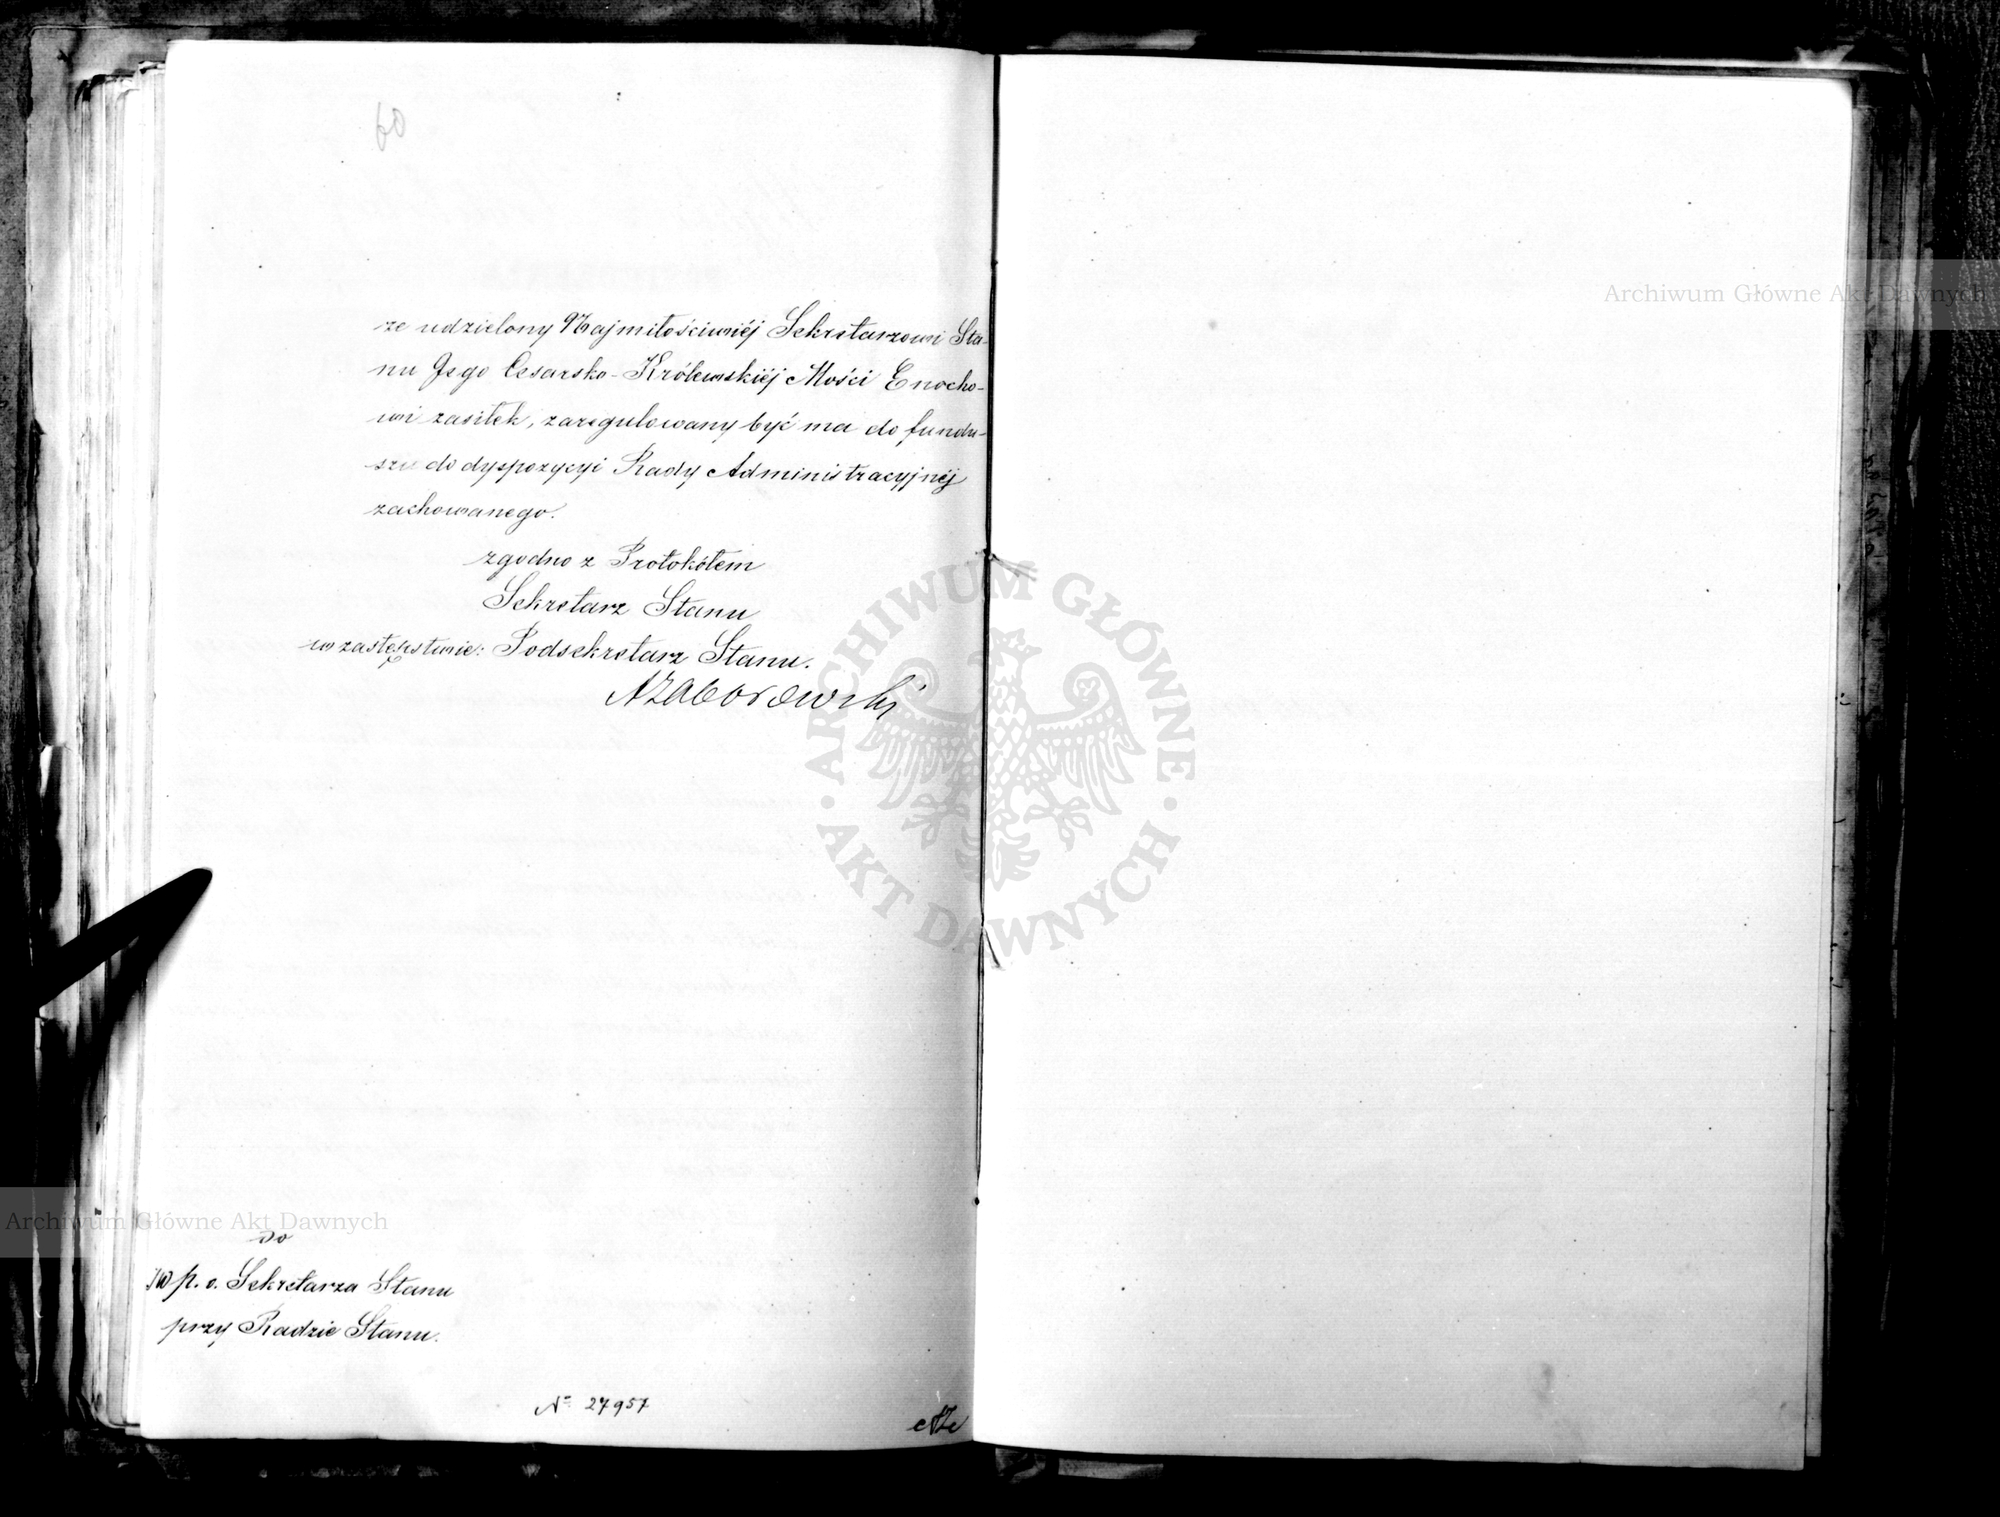 60
ze udzielony Najmiłościwiéj Sekretarzowi Sta-
nu Jego Cesarsko-Królewskiéj Mości Enocho-
wi zasiłek, zaregulowany być ma do fundu-
szu do dyspozycyi Rady Administracyjnéj
zachowanego.
zgodno z Protokółem
Sekretarz Stanu
w zastępstwie: Podsekretarz Stanu.
AZaborowski
Do
JW p. o. Sekretarza Stanu
przy Radzie Stanu.
№ 27957
Archiwum Główne Akt Dawnych
Archiwum Główne Akt Dawnych
ARCHIWUM GŁÓWNE
AKT DAWNYCH